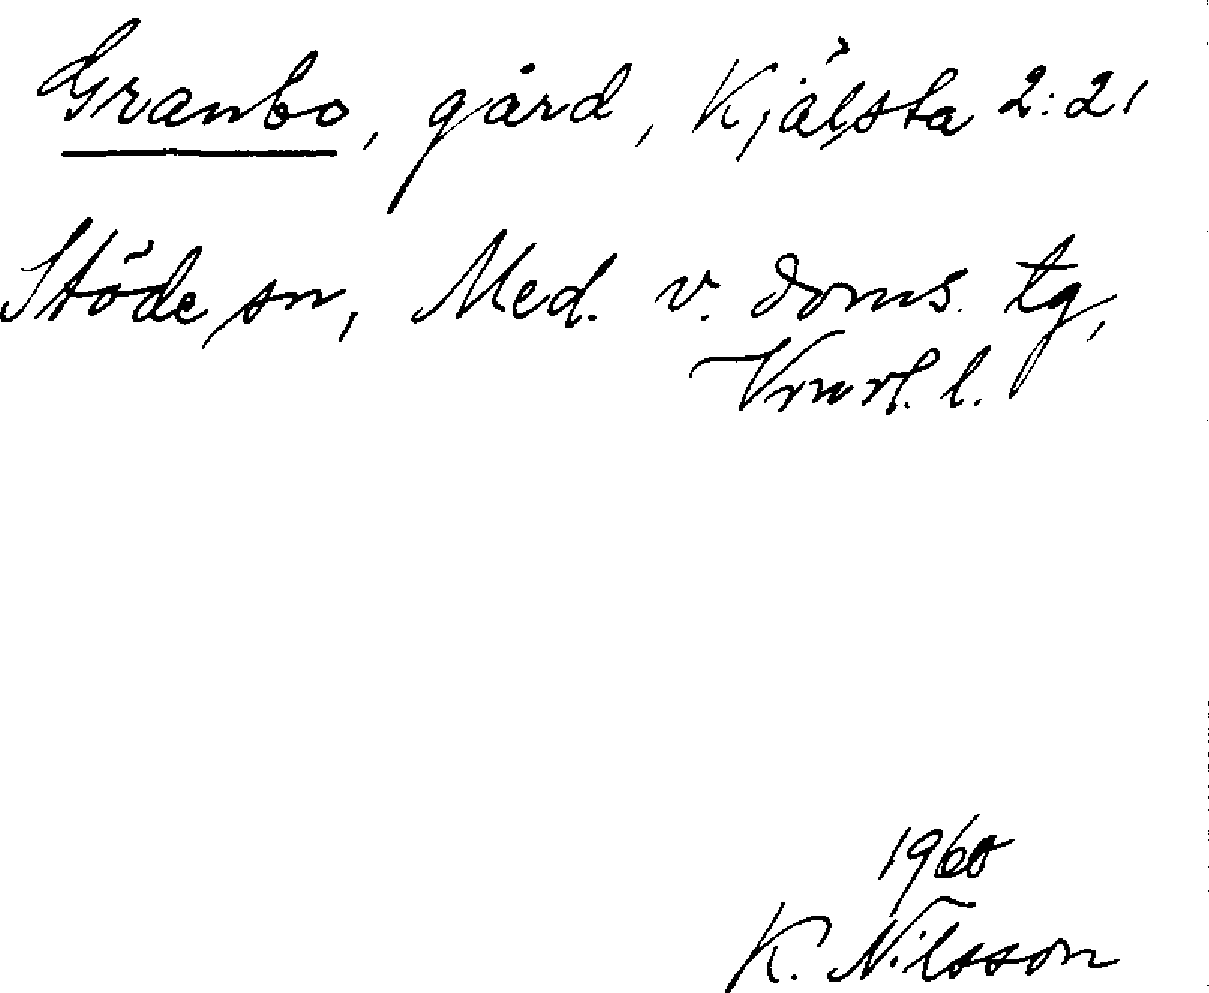 Granbo, gård, Kjälsta 2:21
Stöde sn, Med. v. doms. tg,
Vnorl. l.
1960
K. Nilsson